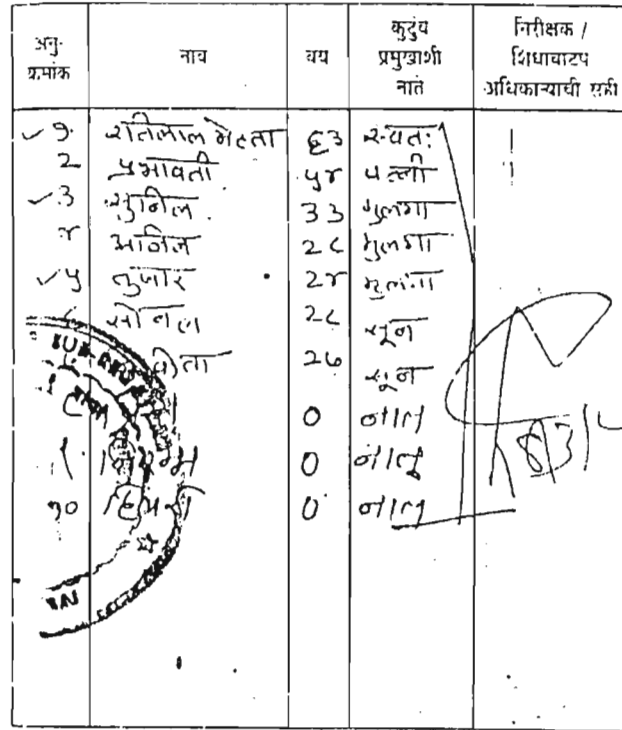 अनु-क्रमांक नाव वय कुटुंब प्रमुखाशी नाते निरीक्षक / शिधावाटप अधिकाऱ्याची सही
१ रतिलाल मेहता ६३ स्वतः
२ प्रभावती ५४ पत्नी
३ सुनिल ३३ मुलगा
४ अनिल २८ मुलगा
५ तुषार २४ मुलगा
सोनल २८ सून
२७ सून
० नात
० नातू
१० ० नात